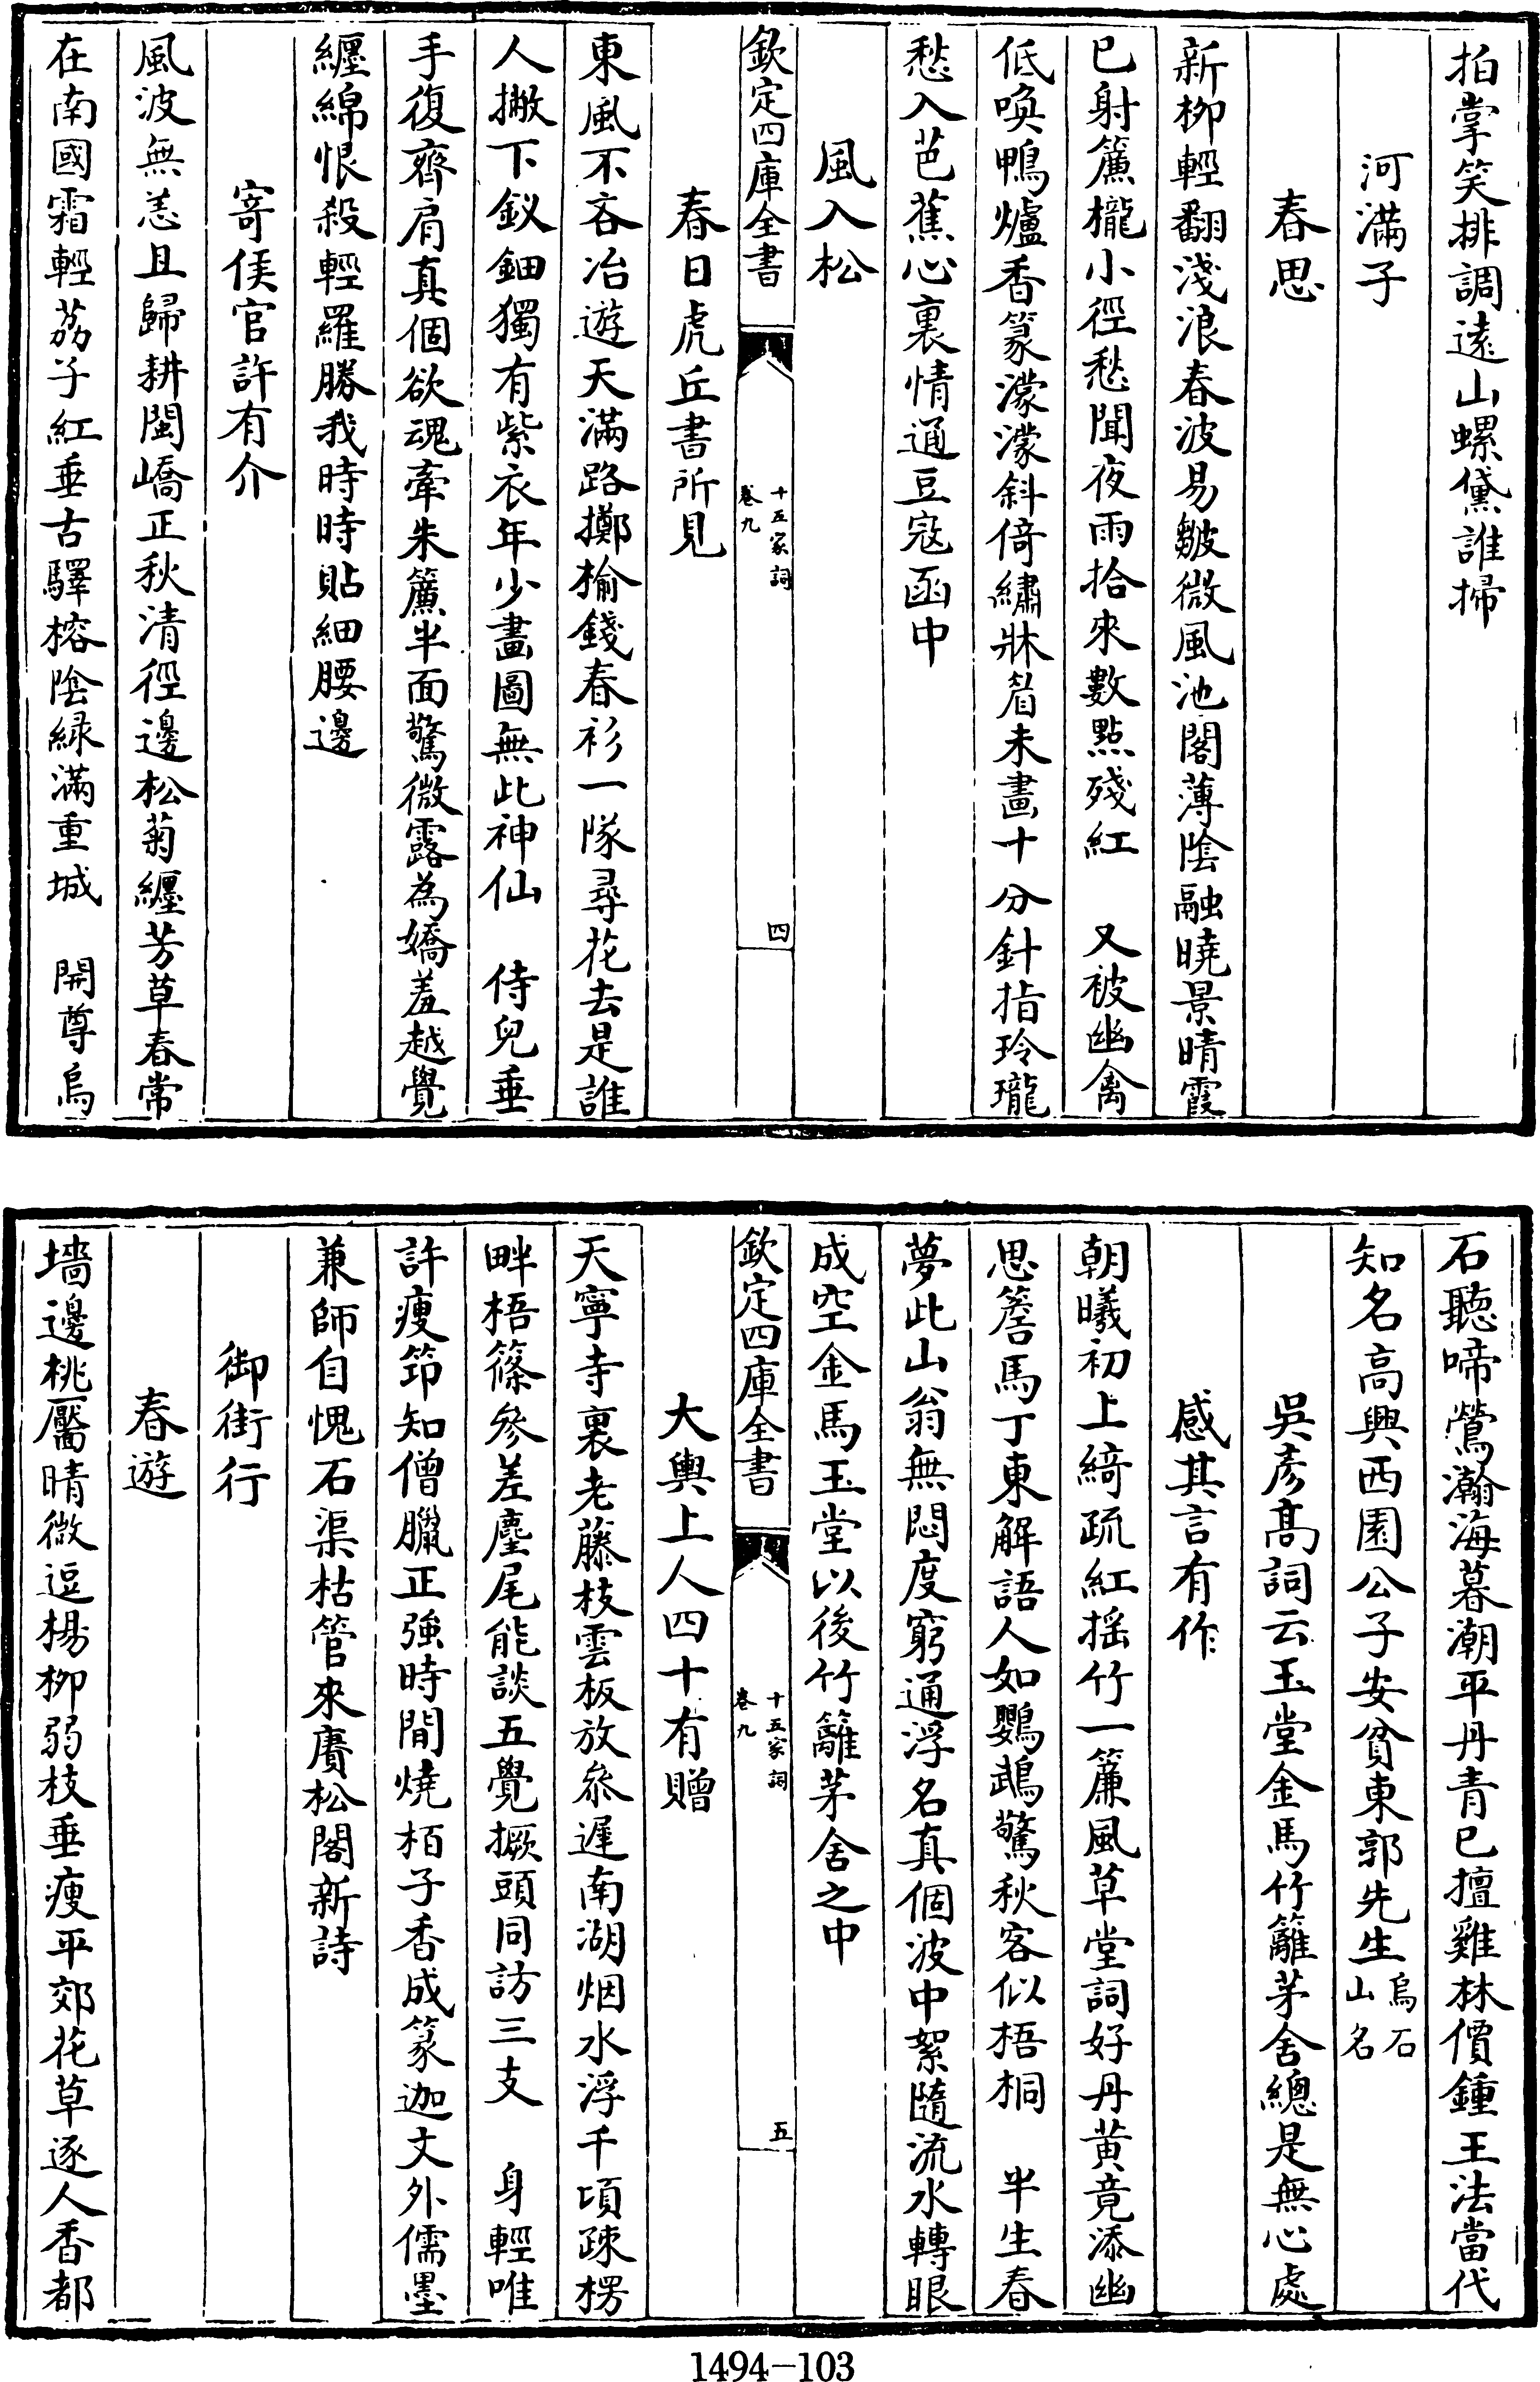 拍掌笑排調遠山螺黛誰掃
河滿子
春思
新柳輕翻淺浪春波易皺微風池閣薄陰融曉景晴霞
已射簾櫳小徑愁聞夜雨拾來數點殘紅　又被幽禽
低喚鴨爐香篆濛濛斜倚繡牀眉未畫十分針指玲瓏
愁入芭蕉心裏情通豆寇函中
風入松
欽定四庫全書
十五家詞
卷九
四
春日虎丘書所見
東風不吝冶遊天滿路擲榆錢春衫一隊尋花去是誰
人撇下釵鈿獨有紫衣年少畫圖無此神仙　侍兒垂
手復齊肩真個欲魂牽朱簾半面驚微露為嬌羞越覺
纏綿恨殺輕羅勝我時時貼細腰邊
寄侯官許有介
風波無恙且歸耕閩嶠正秋清徑邊松菊纏芳草春常
在南國霜輕荔子紅垂古驛榕陰緑滿重城　開尊烏
石聽啼鶯瀚海暮潮平丹青已擅雞林價鍾王法當代
知名高興西園公子安貧東郭先生烏石
山名
吳彥髙詞云玉堂金馬竹籬茅舍總是無心處
感其言有作
朝曦初上綺疏紅摇竹一簾風草堂詞好丹黄竟添幽
思簷馬丁東解語人如鸚鵡驚秋客似梧桐　半生春
夢此山翁無悶度窮通浮名真個波中絮隨流水轉眼
成空金馬玉堂以後竹籬茅舍之中
欽定四庫全書
十五家詞
卷九
五
大輿上人四十有贈
天寧寺裏老藤枝雲板放叅遲南湖烟水浮千頃疎楞
畔梧篠參差麈尾能談五覺撅頭同訪三支　身輕唯
許瘦筇知僧臘正強時閒燒栢子香成篆迦文外儒墨
兼師自愧石渠枯管來賡松閣新詩
御街行
春遊
墻邊桃靨晴微逗楊柳弱枝垂瘦平郊花草逐人香都
1494-103